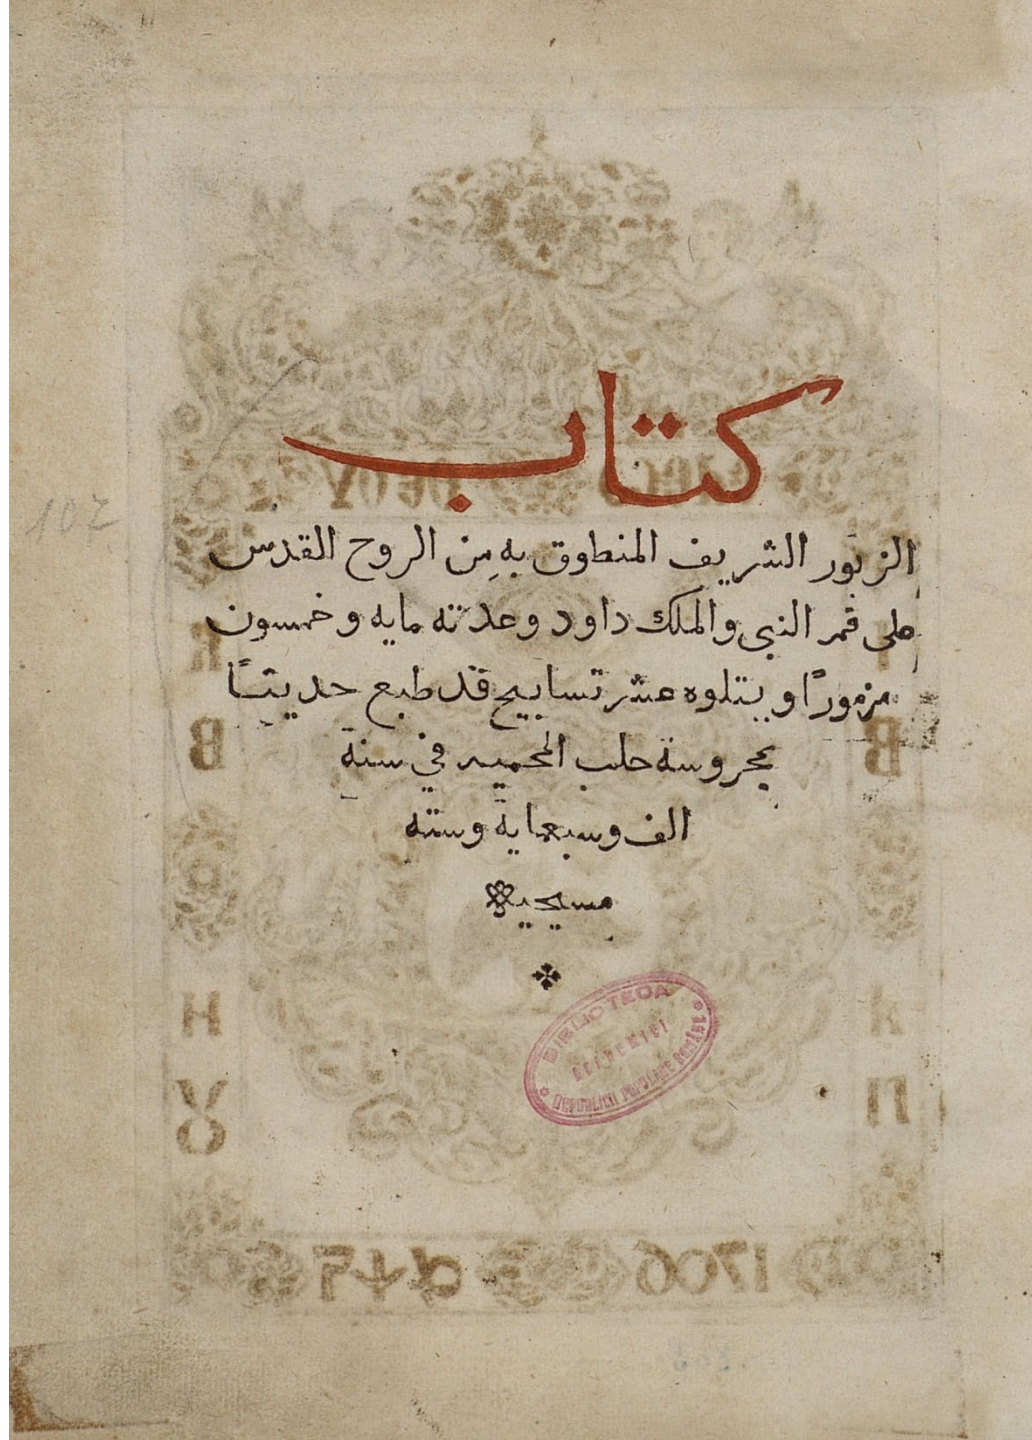 كتاب
الزبور الشريف المنطوق به من الروح القدس
على فمر النبي والملك داود وعدته مايه وخمسون
مزمورًا ويتلوه عشر تسابيح قد طبع حديثًا
بمحروسة حلب المحميه في سنة
الف وسبعماية وسته
مسيحيه
107
BIBLIOTECA
ACADEMIEI
REPUBLICII POPULARE ROMÂNE
1706